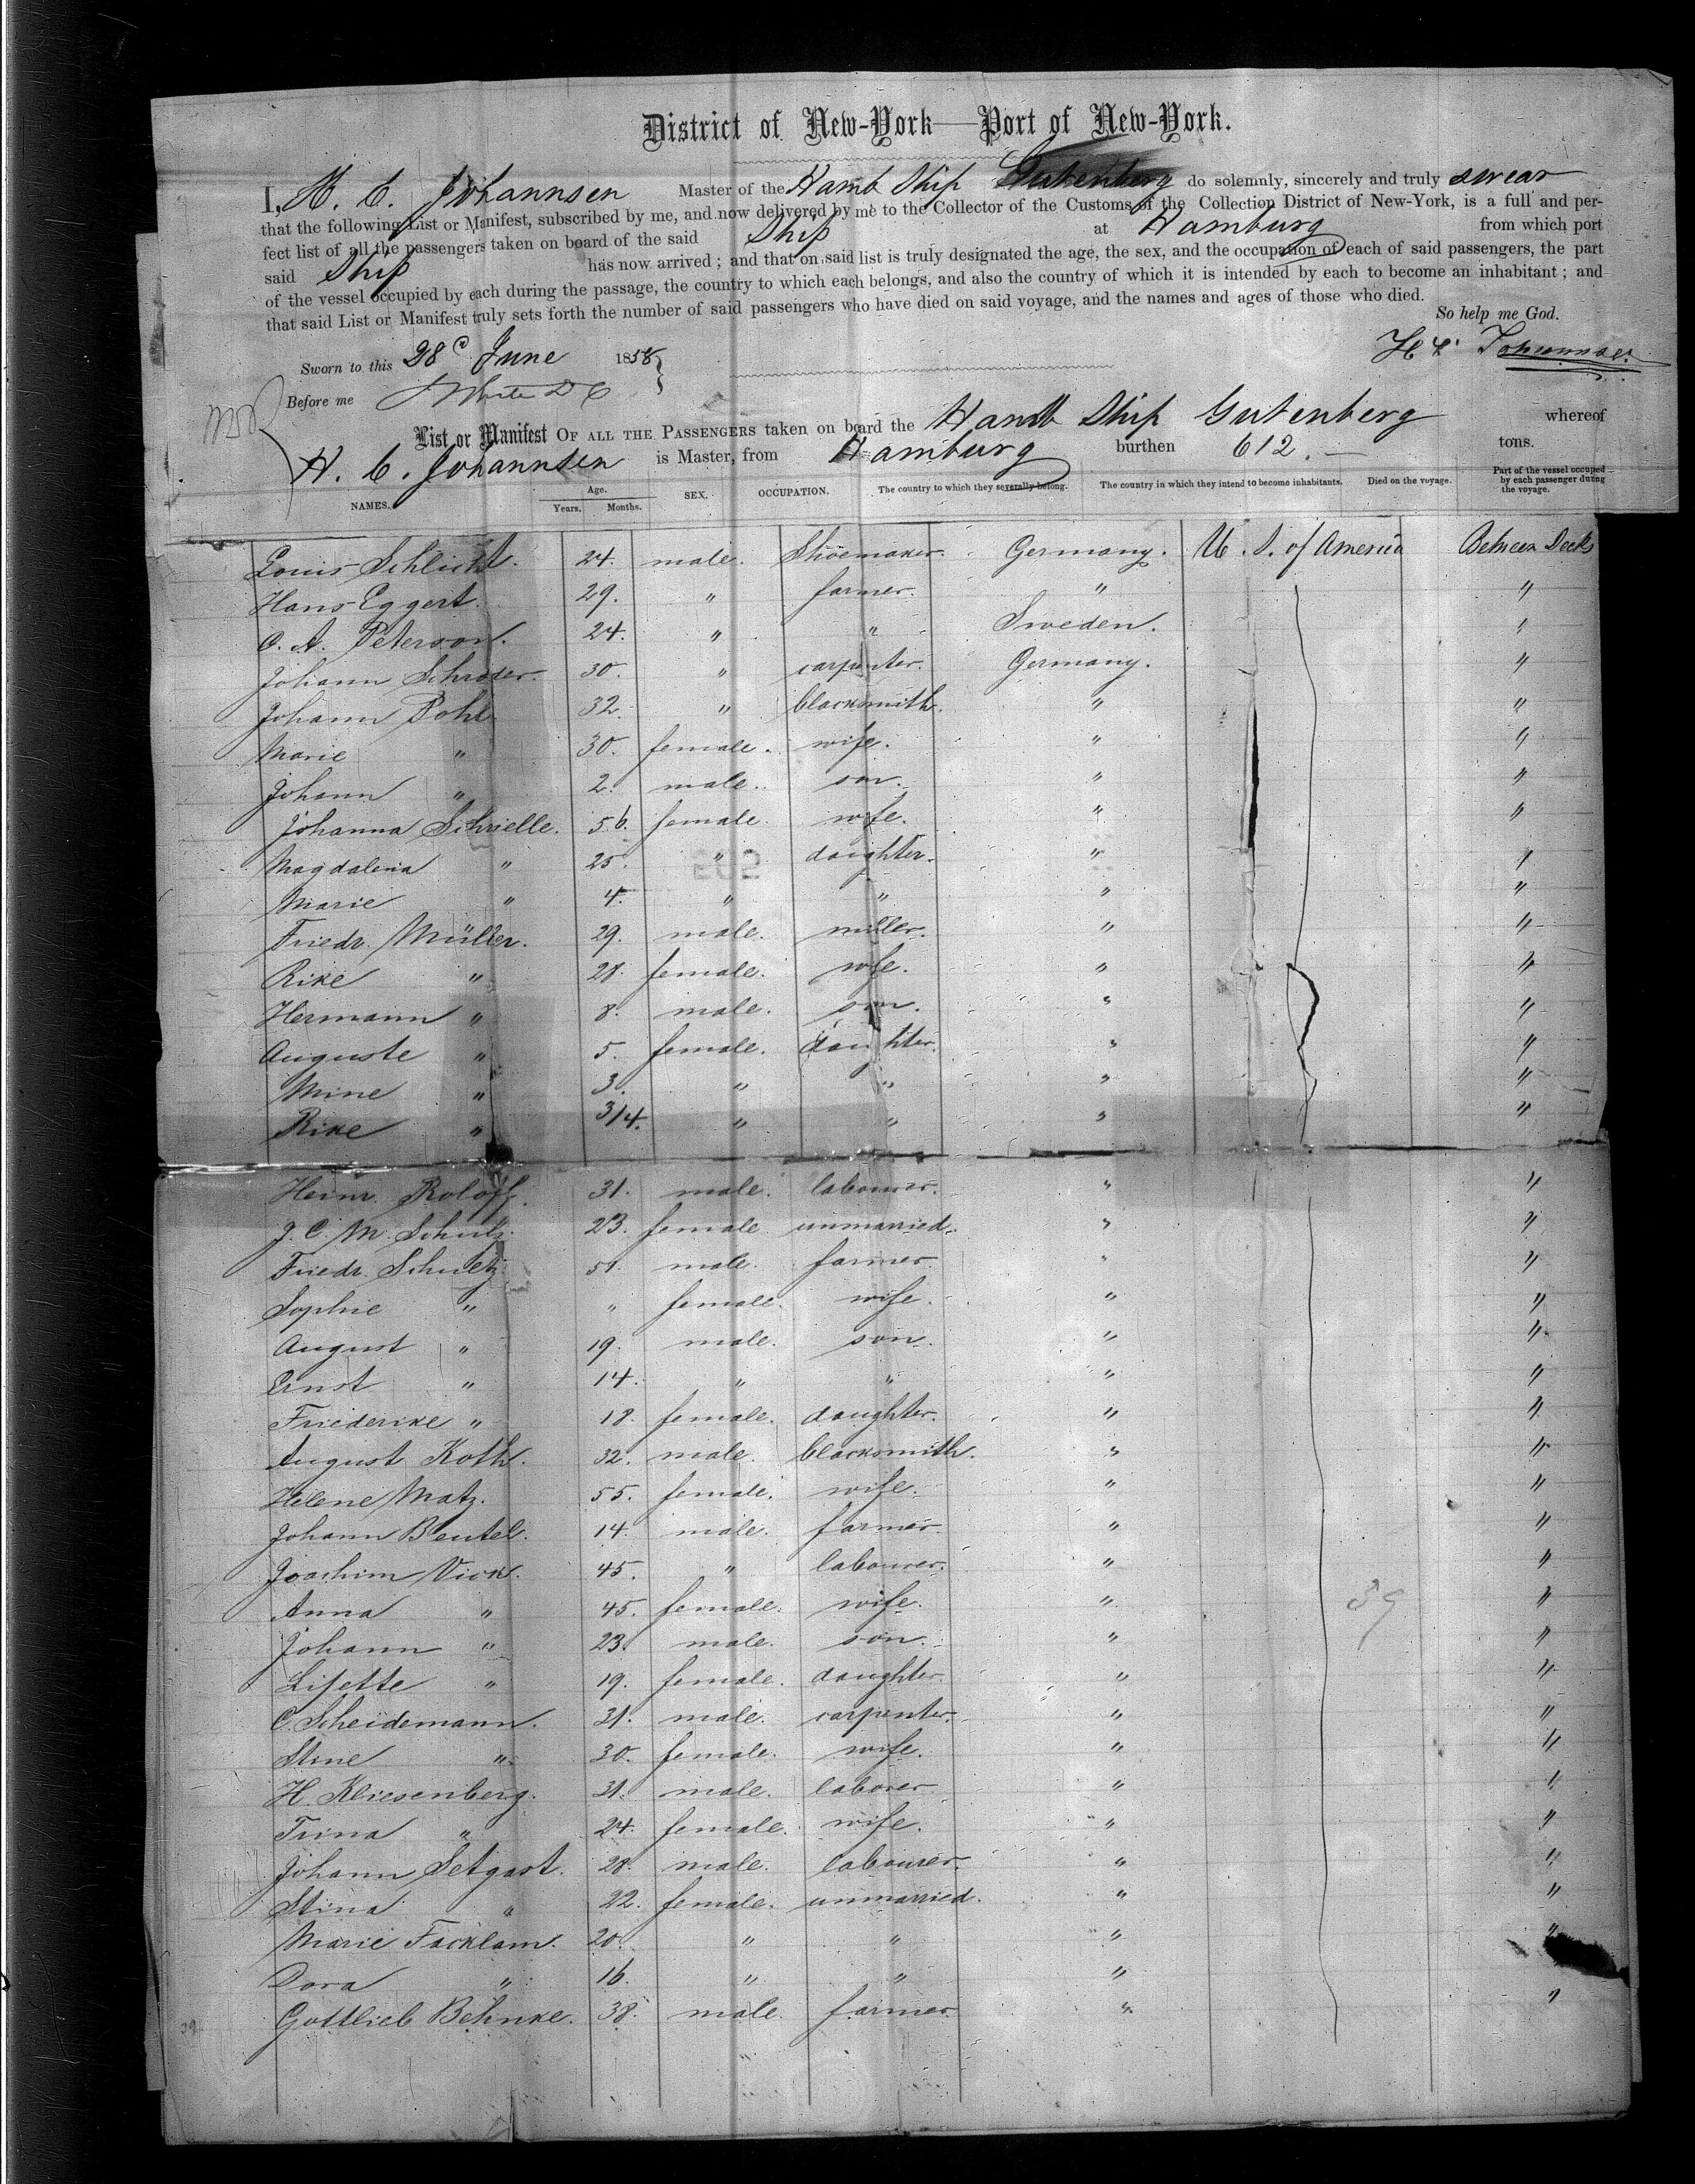 District of New-York—Port of New-York.
I, H. C. Johannsen Master of the Hamb Ship Gutenberg do solemnly, sincerely and truly swear
that the following List or Manifest, subscribed by me, and now delivered by me to the Collector of the Customs of the Collection District of New-York, is a full and per-
fect list of all the passengers taken on board of the said Ship at Hamburg from which port
said Ship has now arrived; and that on said list is truly designated the age, the sex, and the occupation of each of said passengers, the part
of the vessel occupied by each during the passage, the country to which each belongs, and also the country of which it is intended by each to become an inhabitant; and
that said List or Manifest truly sets forth the number of said passengers who have died on said voyage, and the names and ages of those who died.
So help me God.
Sworn to this 28 June 1858 H C Johannsen
Before me White D C
List or Manifest OF ALL THE PASSENGERS taken on board the Hamb Ship Gutenberg whereof
H. C. Johannsen is Master, from Hamburg burthen 612. tons.
NAMES. Age. Years. Months. SEX. OCCUPATION. The country to which they severally belong. The country in which they intend to become inhabitants. Died on the voyage. Part of the vessel occupied by each passenger during the voyage.
Louis Schlicht. 24. male. Shoemaker. Germany. U. S. of America Between Decks
Hans Eggert. 29. " farmer. " "
C. A. Peterson. 24. " " Sweden. "
Johann Schroder. 30. " carpenter. Germany. "
Johann Pohl 32. " blacksmith. " "
Marie " 30. female. wife. " "
Johann " 2. male. son. " "
Johanna Schrielle. 56. female. wife. " "
Magdalena " 25. " daughter. " "
Marie " 4. " " " "
Friedr. Müller. 29. male. miller. " "
Rike " 28. female. wife. " "
Hermann " 8. male. son. " "
Auguste " 5. female. daughter. " "
Mine " 3. " " " "
Rike " 3/4. " " " "
Heinr. Roloff. 31. male. labourer. " "
J. C. M. Schulz. 23. female unmarried. " "
Friedr. Schultz 51. male. farmer. " "
Sophie " " female. wife. " "
August " 19. male. son. " "
Ernst " 14. " " " "
Friederike " 18. female. daughter. " "
August Koth. 32. male. blacksmith. " "
Helene Matz. 55. female. wife. " "
Johann Beutel. 14. male. farmer. " "
Joachim Vick. 45. " labourer. " "
Anna " 45. female. wife. " "
39
Johann " 23. male. son. " "
Lisette " 19. female. daughter. " "
C. Scheidemann. 31. male. carpenter. " "
Stine " 30. female. wife. " "
H. Kliesenberg. 31. male. laborer. " "
Trina " 24. female. wife. " "
Johann Setgast. 28. male. labourer. " "
Stina " 22. female. unmarried. " "
Marie Facklam. 20. " " " "
Dora " 16. " " "
Gottlieb Behnke. 38. male. farmer. " "
39